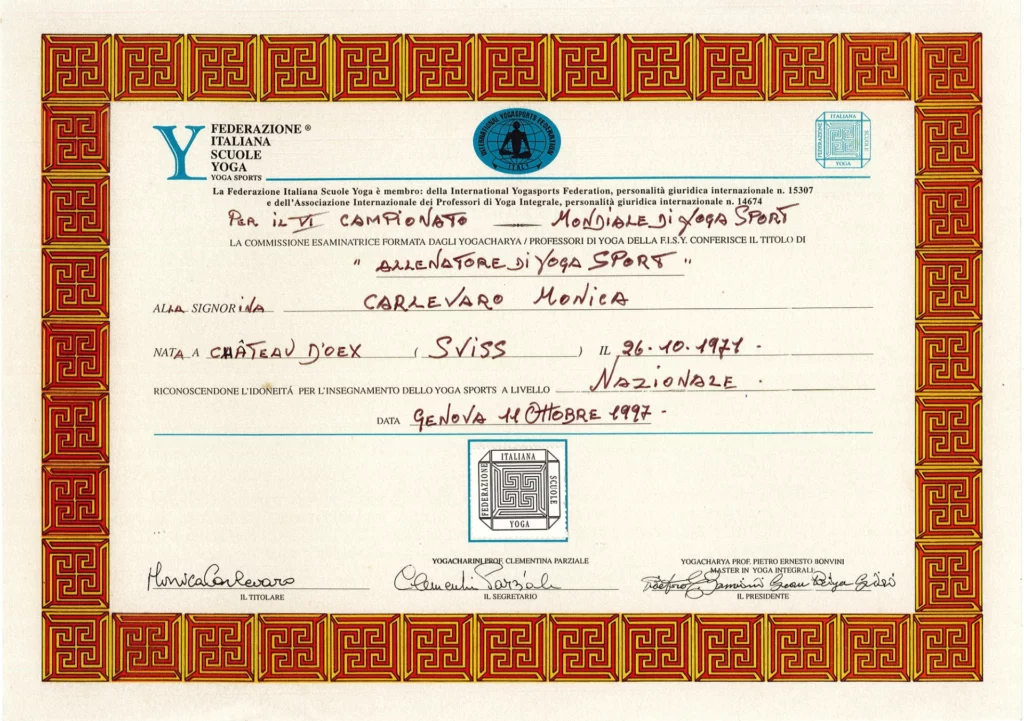 FEDERAZIONE ®
ITALIANA
SCUOLE
YOGA
YOGA SPORTS
INTERNATIONAL YOGASPORTS FEDERATION
ITALY
ITALIANA
FEDERAZIONE
SCUOLE
YOGA
La Federazione Italiana Scuole Yoga è membro: della International Yogasports Federation, personalità giuridica internazionale n. 15307
e dell'Associazione Internazionale dei Professori di Yoga Integrale, personalità giuridica internazionale n. 14674
PER IL VI CAMPIONATO — MONDIALE DI YOGA SPORT
LA COMMISSIONE ESAMINATRICE FORMATA DAGLI YOGACHARYA / PROFESSORI DI YOGA DELLA F.I.S.Y. CONFERISCE IL TITOLO DI
" ALLENATORE DI YOGA SPORT "
ALLA SIGNORINA CARLEVARO MONICA
NATA A CHÂTEAU D'OEX ( SVISS ) IL 26.10.1971.
RICONOSCENDONE L'IDONEITÁ PER L'INSEGNAMENTO DELLO YOGA SPORTS A LIVELLO NAZIONALE.
DATA GENOVA 11 OTTOBRE 1997-
ITALIANA
FEDERAZIONE
SCUOLE
YOGA
YOGACHARINI PROF. CLEMENTINA PARZIALE
YOGACHARYA PROF. PIETRO ERNESTO BONVINI
MASTER IN YOGA INTEGRALE
Monica Carlevaro
Clementina Parziale
IL TITOLARE
IL SEGRETARIO
IL PRESIDENTE